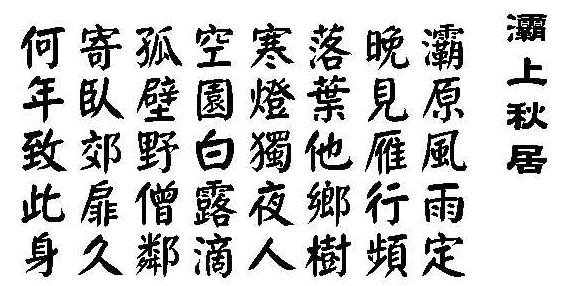 灞上秋居
灞原風雨定
晚見雁行頻
落葉他鄉樹
寒燈獨夜人
空園白露滴
孤壁野僧鄰
寄臥郊扉久
何年致此身